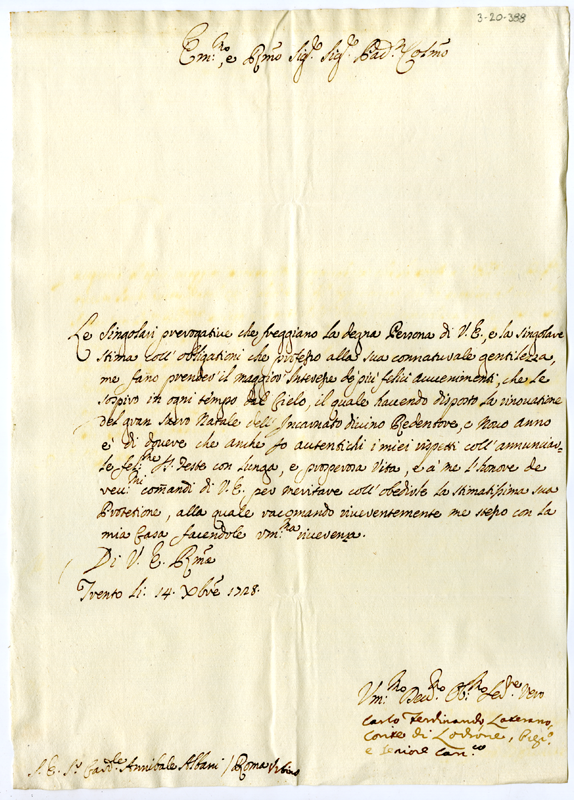 3-20-388
Em:mo, e Rmo Sig.e Sig.e Pad.n Colmo
Le Singolari prerogative che freggiano la degna Persona di V. E., e la singolare
stima coll' obligationi che professo alla sua connaturale gentilezza,
me fano prender il maggior Interesse de più felici avvenimenti, che Le
sospiro in ogni tempo dal Cielo, il quale havendo disposto la rinovatione
del gran Sacro Natale dell' Incarnato divino Redentore, e Novo anno
è di dovere che anche Io autentichi i miei rispetti coll' annunciar-
le feli:me SS. Feste con lunga, e prosperosa Vita, è à me l'honore de
rev:mi comãndi di V. E. per meritare coll' obedirle la Stimatissima sua
Protetione, alla quale racomando riverentemente me stesso con la
mia Casa facendole um:ma riverenza.
Di V. E. Rma
Trento li: 14. Xbre 1728.
Um:mo Dev:mo Ob:mo Se.re Vero
Carlo Ferdinando Laterano,
Conte di Lodrone,
e Seniore Can.co
S. E. Sr Card.le Annibale Albani / Roma Urbino